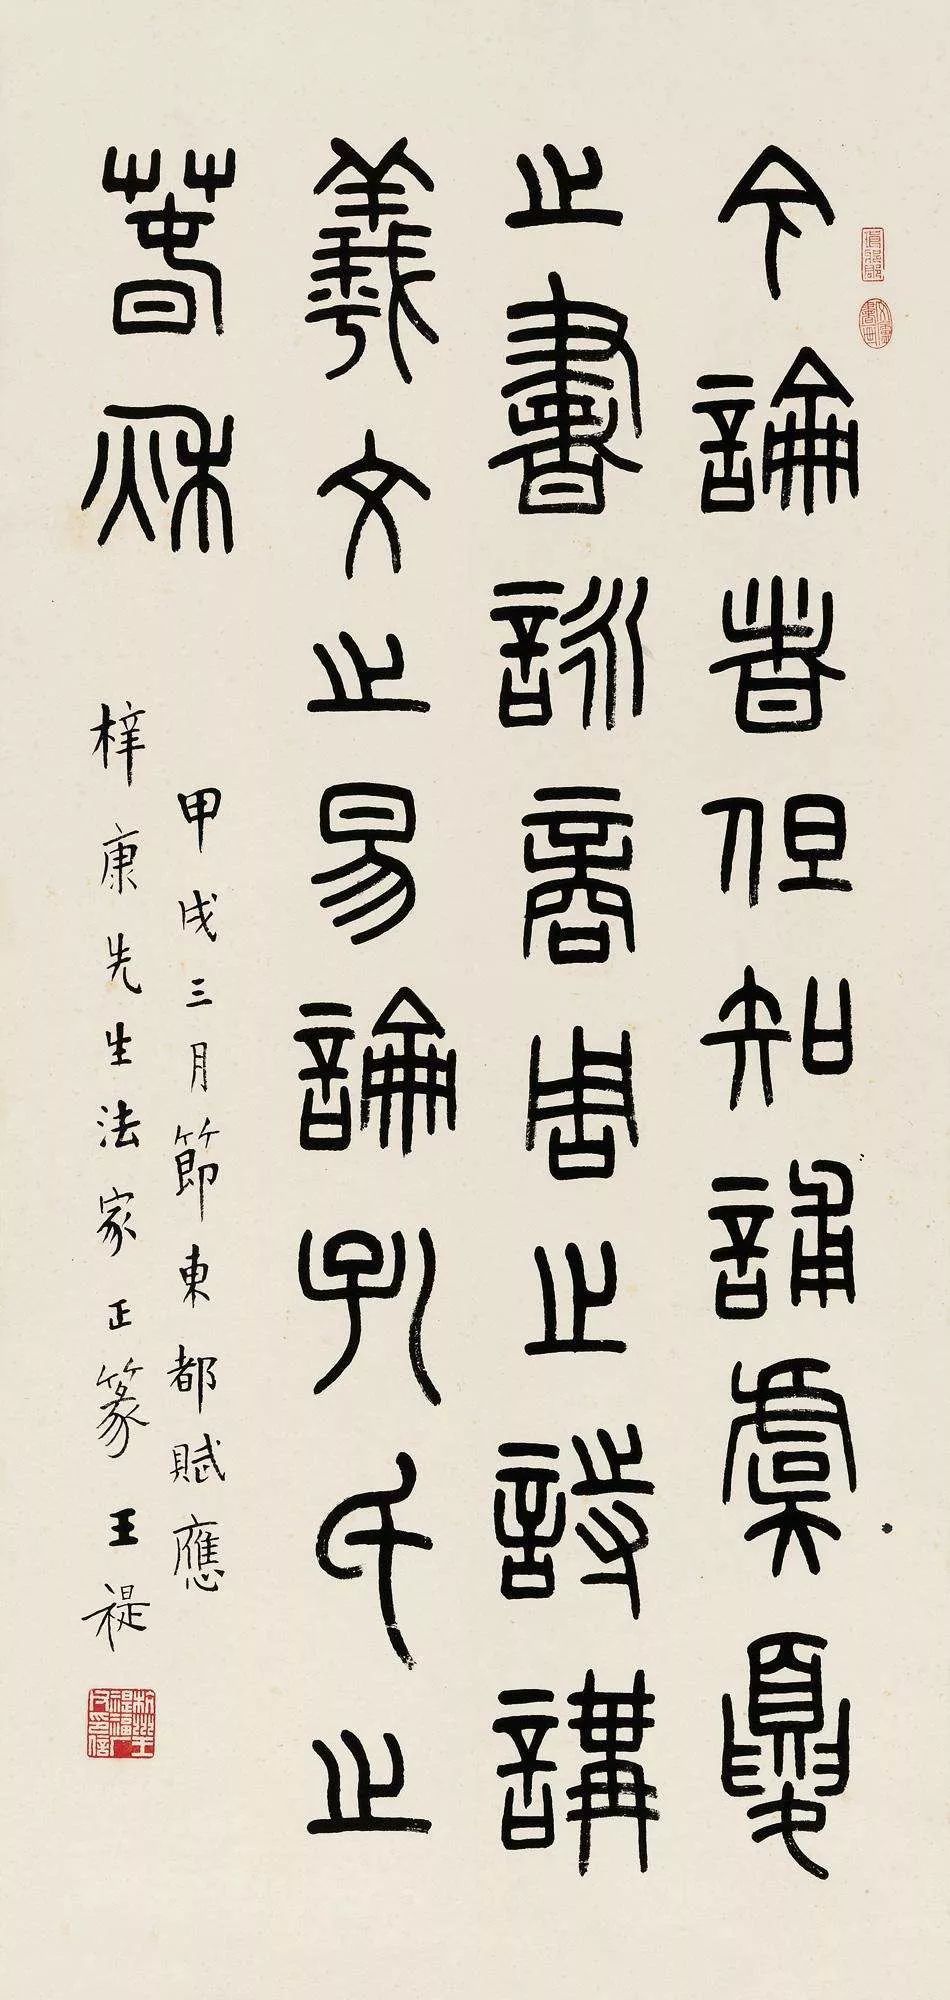 今論者但知誦虞夏
之書詠商周之詩講
羲文之易論孔氏之
春秋
甲戌三月節東都賦應
梓康先生法家正篆王禔